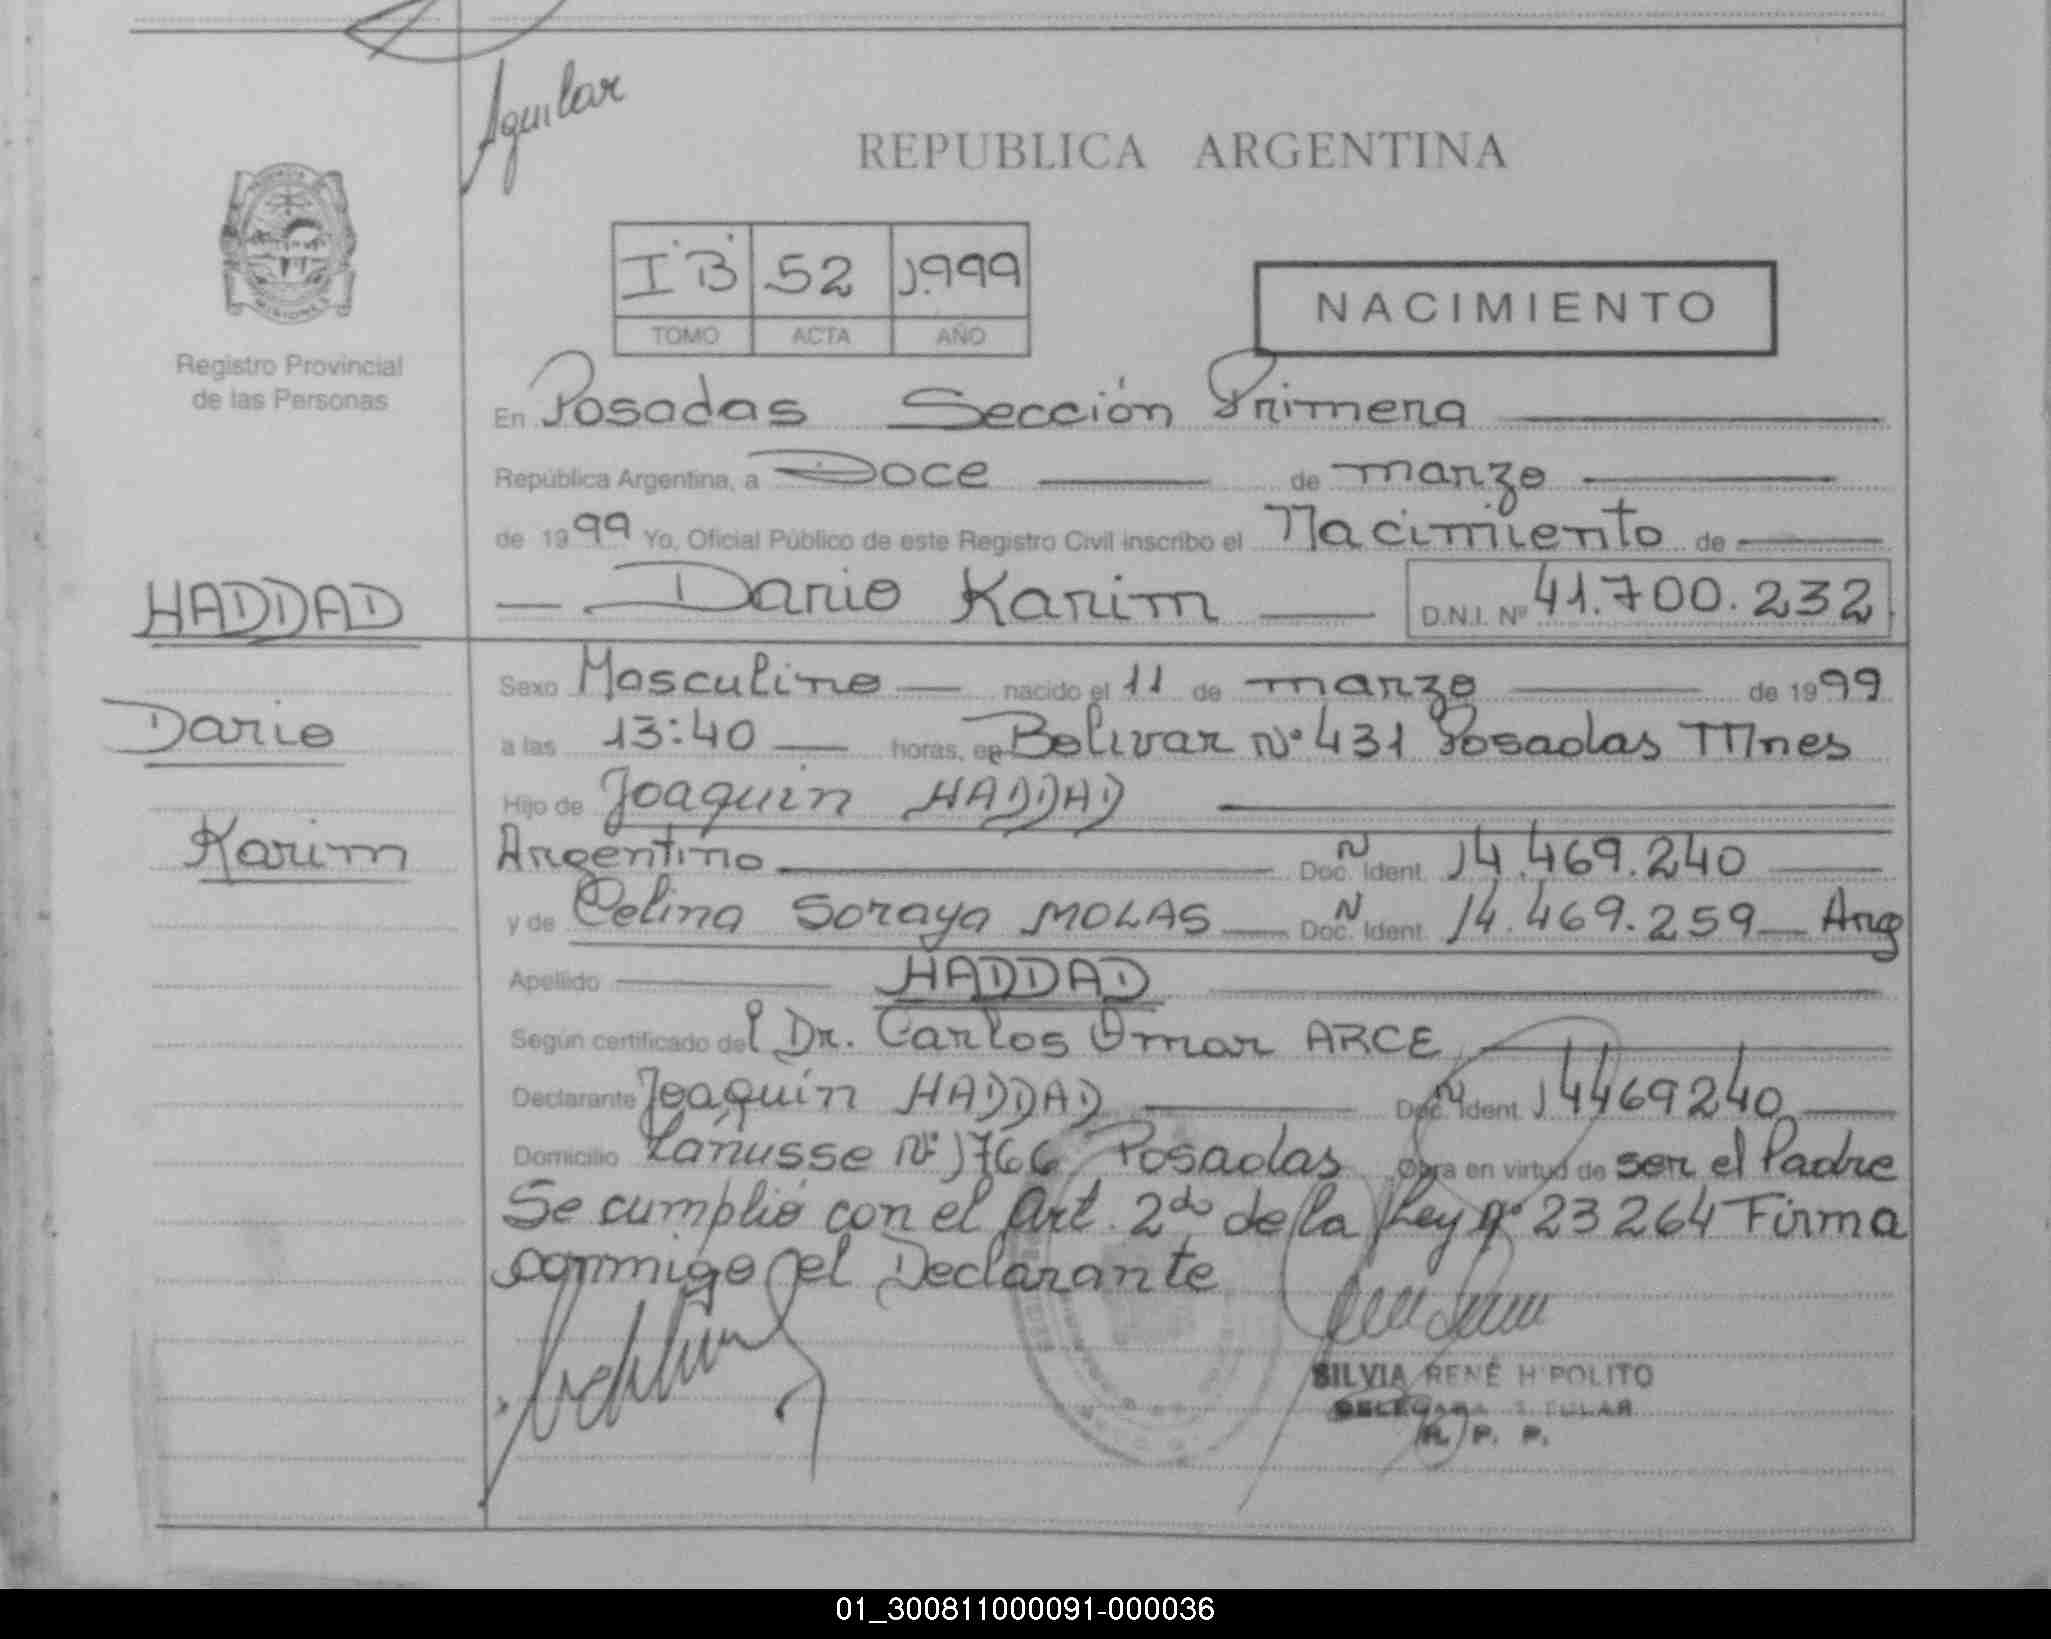 Aguilar
REPUBLICA ARGENTINA
I "B" 52 1.999
TOMO ACTA AÑO
NACIMIENTO
Registro Provincial
de las Personas
En Posadas Sección Primera
República Argentina, a Doce de marzo
de 1999 Yo, Oficial Público de este Registro Civil inscribo el Nacimiento de
HADDAD
Dario Karim D.N.I. Nº 41.700.232
Sexo Masculino nacido el 11 de marzo de 1999
Dario
a las 13:40 horas, en Bolivar Nº 431 Posadas Mnes
Hijo de Joaquín HADDAD
Karim
Argentino Doc. N Ident. 14.469.240
y de Celina Soraya MOLAS Doc. N Ident. 14.469.259 Arg
Apellido HADDAD
Según certificado del Dr. Carlos Omar ARCE
Declarante Joaquín HADDAD Doc. N Ident. 14469240
Domicilio Lanusse Nº 1766 Posadas Obra en virtud de ser el Padre
Se cumplió con el Art. 2do de la Ley nº 23264 Firma
conmigo el Declarante
SILVIA RENÉ HIPOLITO
DELEGADA TITULAR
R. P. P.
01_300811000091-000036